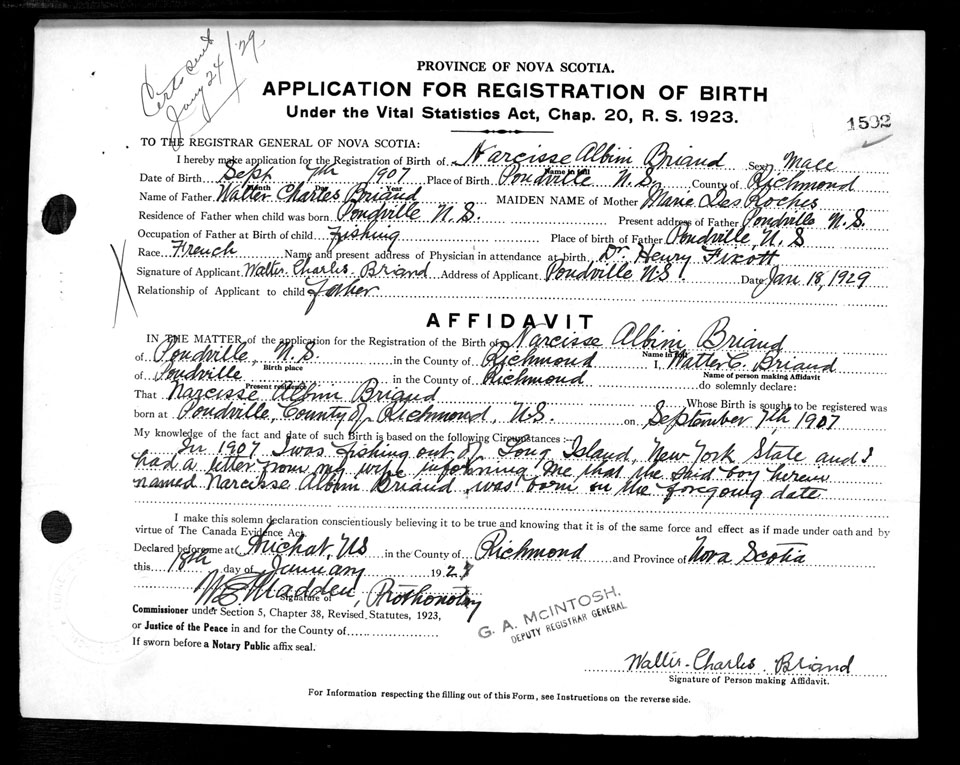 Certs sent
Jany 24/29
PROVINCE OF NOVA SCOTIA.
APPLICATION FOR REGISTRATION OF BIRTH
Under the Vital Statistics Act, Chap. 20, R. S. 1923.
1592
TO THE REGISTRAR GENERAL OF NOVA SCOTIA:
I hereby make application for the Registration of Birth of Narcisse Albini Briand Sex Male
Name in full
Date of Birth Sept 7th 1907 Place of Birth Pondville N. S. County of Richmond
Month Day Year
Name of Father Walter Charles Briand MAIDEN NAME of Mother Marie DesRoches
Residence of Father when child was born Pondville N. S. Present address of Father Pondville N. S.
Occupation of Father at Birth of child fishing Place of birth of Father Pondville, N. S
Race French Name and present address of Physician in attendance at birth, Dr. Henry Fixott
Signature of Applicant Walter Charles Briand Address of Applicant Pondville NS. Date Jan 18, 1929
Relationship of Applicant to child father
AFFIDAVIT
IN THE MATTER of the application for the Registration of the Birth of Narcisse Albini Briand
Name in full
of Pondville, N. S. in the County of Richmond I, Walter C Briand
Birth place Name of person making Affidavit
of Pondville in the County of Richmond do solemnly declare:
Present residence
That Narcisse Albini Briand Whose Birth is sought to be registered was
born at Pondville, County of Richmond, NS. on September 7th 1907
My knowledge of the fact and date of such Birth is based on the following Circumstances :—
In 1907 I was fishing out of Long Island, New York State and I
had a letter from my wife informing me that the said boy herein
named Narcisse Albini Briand was born on the foregoing date
I make this solemn declaration conscientiously believing it to be true and knowing that it is of the same force and effect as if made under oath and by
virtue of The Canada Evidence Act.
Declared before me at Arichat, NS in the County of Richmond and Province of Nova Scotia
this 18th day of January 1929
Madden, Prothonotary
Signature of
Commissioner under Section 5, Chapter 38, Revised Statutes, 1923,
or Justice of the Peace in and for the County of
If sworn before a Notary Public affix seal.
G. A. McINTOSH,
DEPUTY REGISTRAR GENERAL
Walter Charles Briand
Signature of Person making Affidavit.
For Information respecting the filling out of this Form, see Instructions on the reverse side.